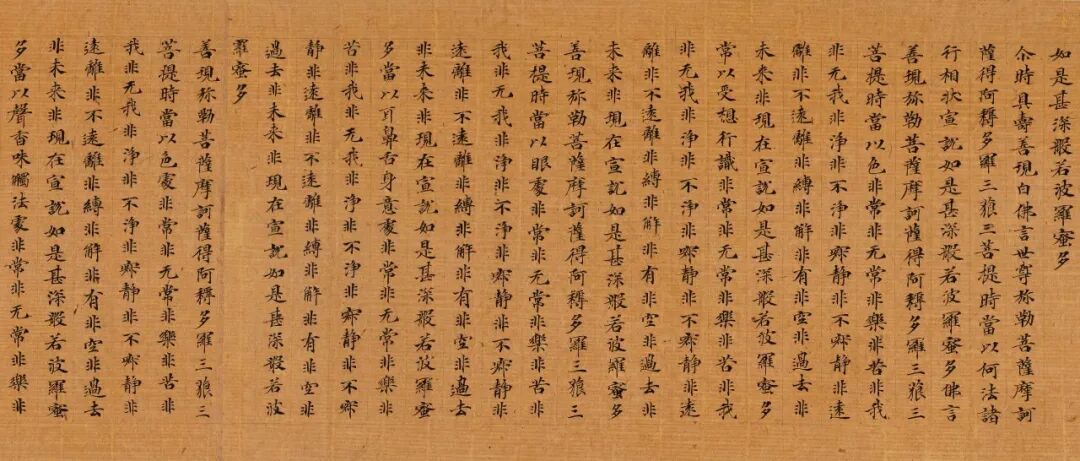 如是甚深般若波羅蜜多
尒時具壽善現白佛言世尊弥勒菩薩摩訶
薩得阿耨多羅三藐三菩提時當以何法諸
行相狀宣說如是甚深般若波羅蜜多佛言
善現弥勒菩薩摩訶薩得阿耨多羅三藐三
菩提時當以色非常非无常非樂非苦非我
非无我非淨非不淨非寂靜非不寂靜非遠
離非不遠離非縛非解非有非空非過去非
未來非現在宣說如是甚深般若波羅蜜多
當以受想行識非常非无常非樂非苦非我
非无我非淨非不淨非寂靜非不寂靜非遠
離非不遠離非縛非解非有非空非過去非
未來非現在宣說如是甚深般若波羅蜜多
善現弥勒菩薩摩訶薩得阿耨多羅三藐三
菩提時當以眼處非常非无常非樂非苦非
我非无我非淨非不淨非寂靜非不寂靜非
遠離非不遠離非縛非解非有非空非過去
非未來非現在宣說如是甚深般若波羅蜜
多當以耳鼻舌身意處非常非无常非樂非
苦非我非无我非淨非不淨非寂靜非不寂
靜非遠離非不遠離非縛非解非有非空非
過去非未來非現在宣說如是甚深般若波
羅蜜多
善現弥勒菩薩摩訶薩得阿耨多羅三藐三
菩提時當以色處非常非无常非樂非苦非
我非无我非淨非不淨非寂靜非不寂靜非
遠離非不遠離非縛非解非有非空非過去
非未來非現在宣說如是甚深般若波羅蜜
多當以聲香味觸法處非常非无常非樂非